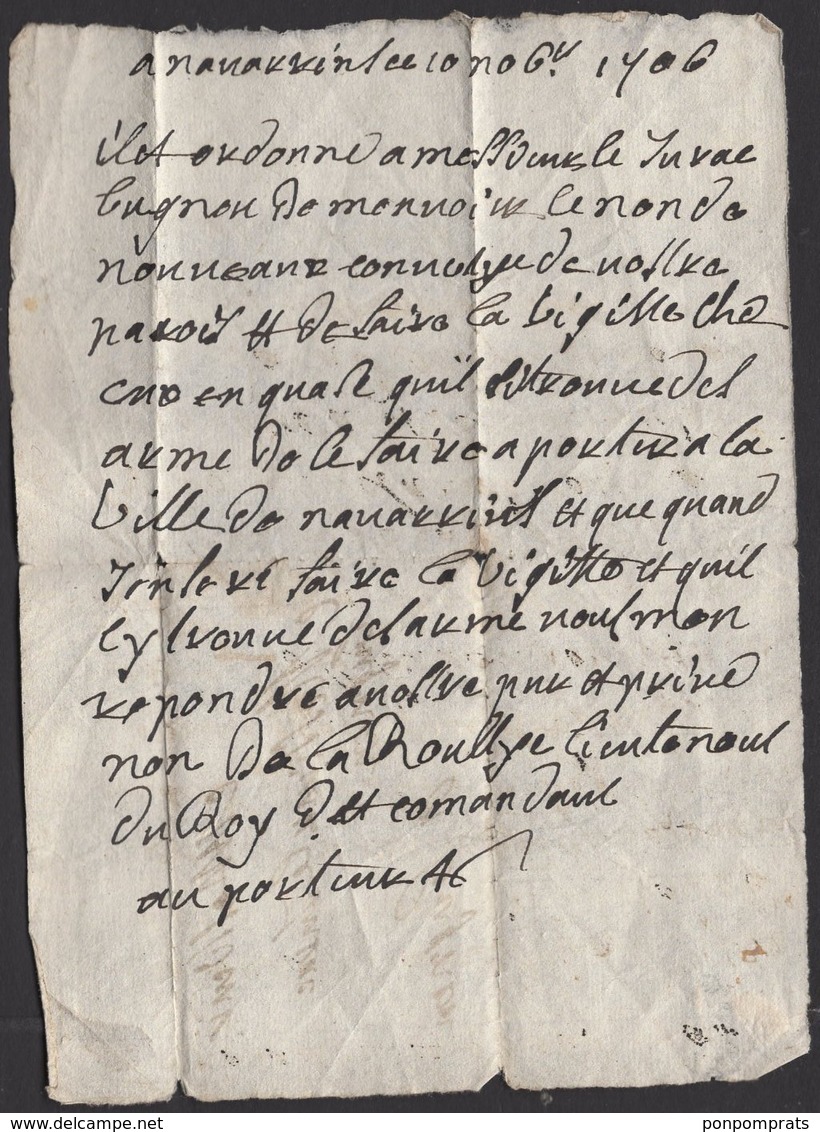 a navarrins ce 10 no 6.r 1706
il et ordonne a messieurs le Jurae
bugnon de menvoier le non de
nouveaux convertye de vostre
parois et de faire la vigille ché
cun en quas quil sitrouve des
arme de le faire aporter a la
ville de navarrins et que quand
faire la vigille et quil
cy trouve des arme vous mon
repondré a vostre pur et prive
non De la Roullye lieutenant
du Roy d. et comandant
au porteur 4s
ponpomprats